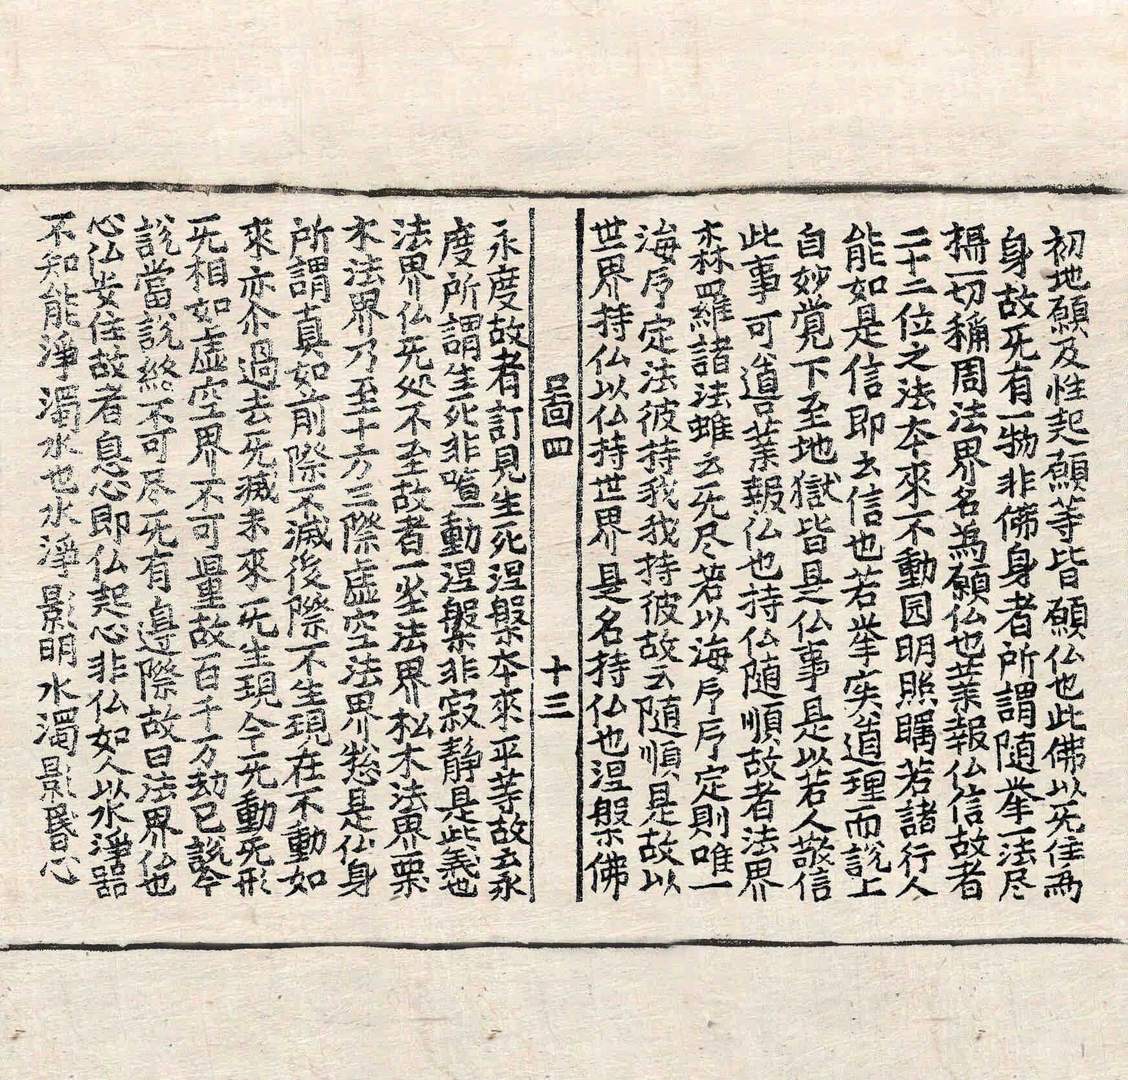 初地願及性起願等皆願仏也此佛以无住為
身故无有一物非佛身者所謂随挙一法尽
攝一切稱周法界名為願仏也業報仏信故者
二十二位之法本來不動园明照矚若諸行人
能如是信即云信也若挙实道理而說上
自妙覚下至地獄皆是仏事是以若人敬信
此事可道業報仏也持仏随順故者法界
森羅諸法雖云无尽若以海印定則唯一
海印定法彼持我我持彼故云随順是故以
世界持仏以仏持世界是名持仏也涅槃佛
啚四 十三
永度故者訂見生死涅槃本來平等故云永
度所謂生死非喧動涅槃非寂静是此義也
法界仏无処不至故者一坐法界松木法界栗
木法界乃至十方三際虚空法界揔是仏身
所謂真如前際不滅後際不生現在不動如
來亦尒過去无滅未來无生現今无動无形
无相如虚空界不可量故百千万劫已說今
說當說終不可尽无有邉際故曰法界仏也
心仏安住故者息心即仏起心非仏如人以水淨器
不知能淨濁水也水淨影明水濁影昏心